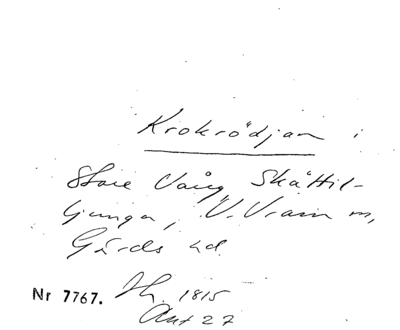 Krokrödjan i
Store Vång Skättil-
ljunga, V. Vram m,
Gärds hd.
Nr 7767. 1815
Akt 27